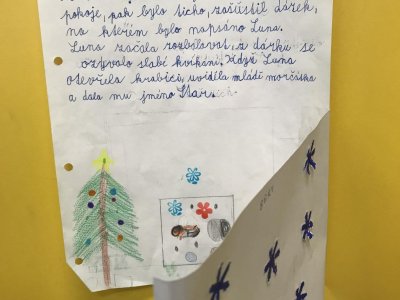 pokoje, pak bylo ticho, zašustil dárek,
na kterém bylo napsáno Luna.
Luna začala rozbalovat, z dárku se
ozývalo slabí kvíkání. Když Luna
otevřela krabici, uviděla mládě morčátka
a dala mu jméno Star.